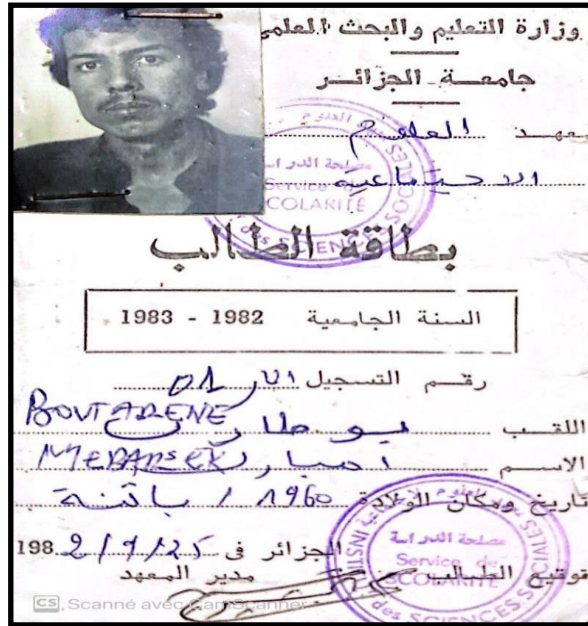 وزارة التعليم والبحث العلمي
جامعـة الجزائـر
معهـد العلوم
الاجتماعية
مصلحة الدراسة
Service de
SCOLARITÉ
بطاقة الطالب
السنة الجامعية 1982 - 1983
رقـم التسجيل 01
BOUTARENE
اللقـب بوطارن
الاسـم امبارك
تاريخ ومكان الولادة 1960 / باتنة
الجزائر في 25/9/1982
توقيع الطالب مدير المعهد
مصلحة الدراسة
Service de
SCOLARITÉ
des SCIENCES SOCIALES
CS Scanné avec CamScanner